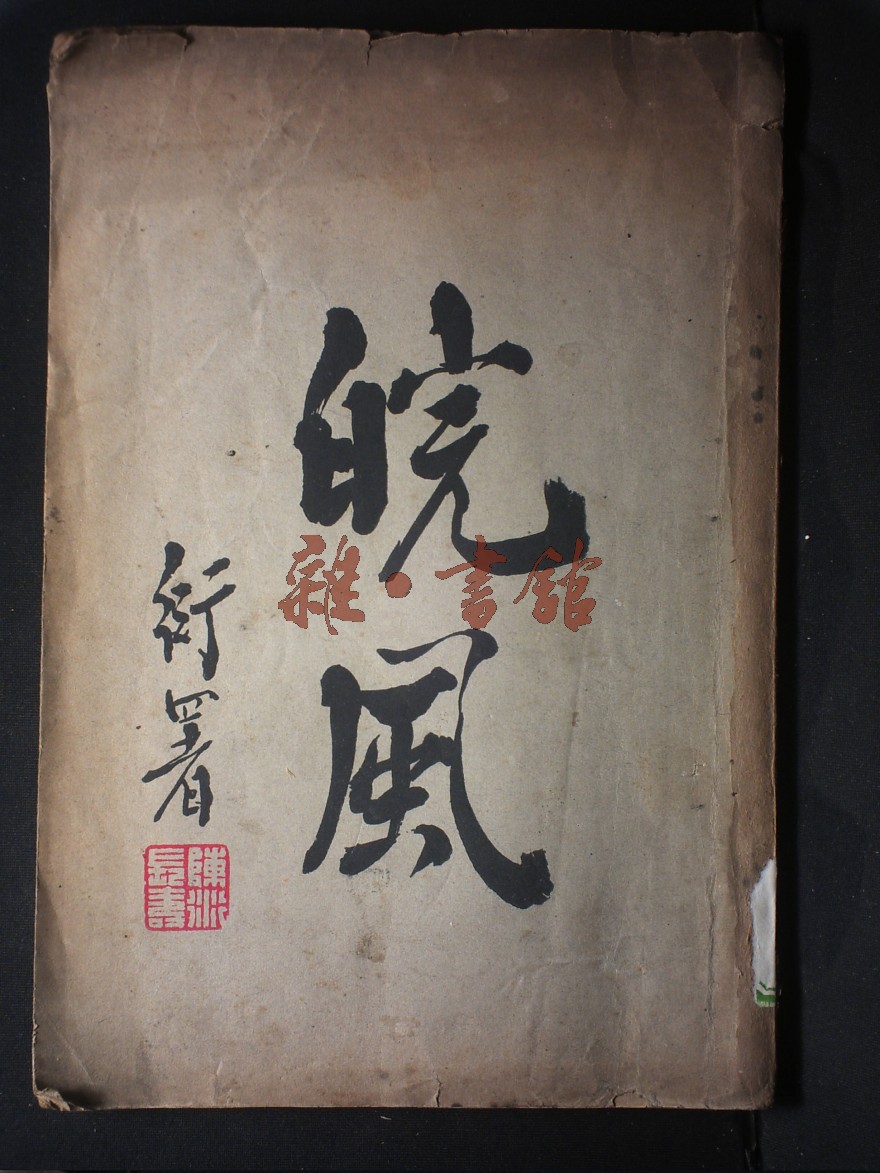 皖風
衍署
陳衍
長壽
雜·書館